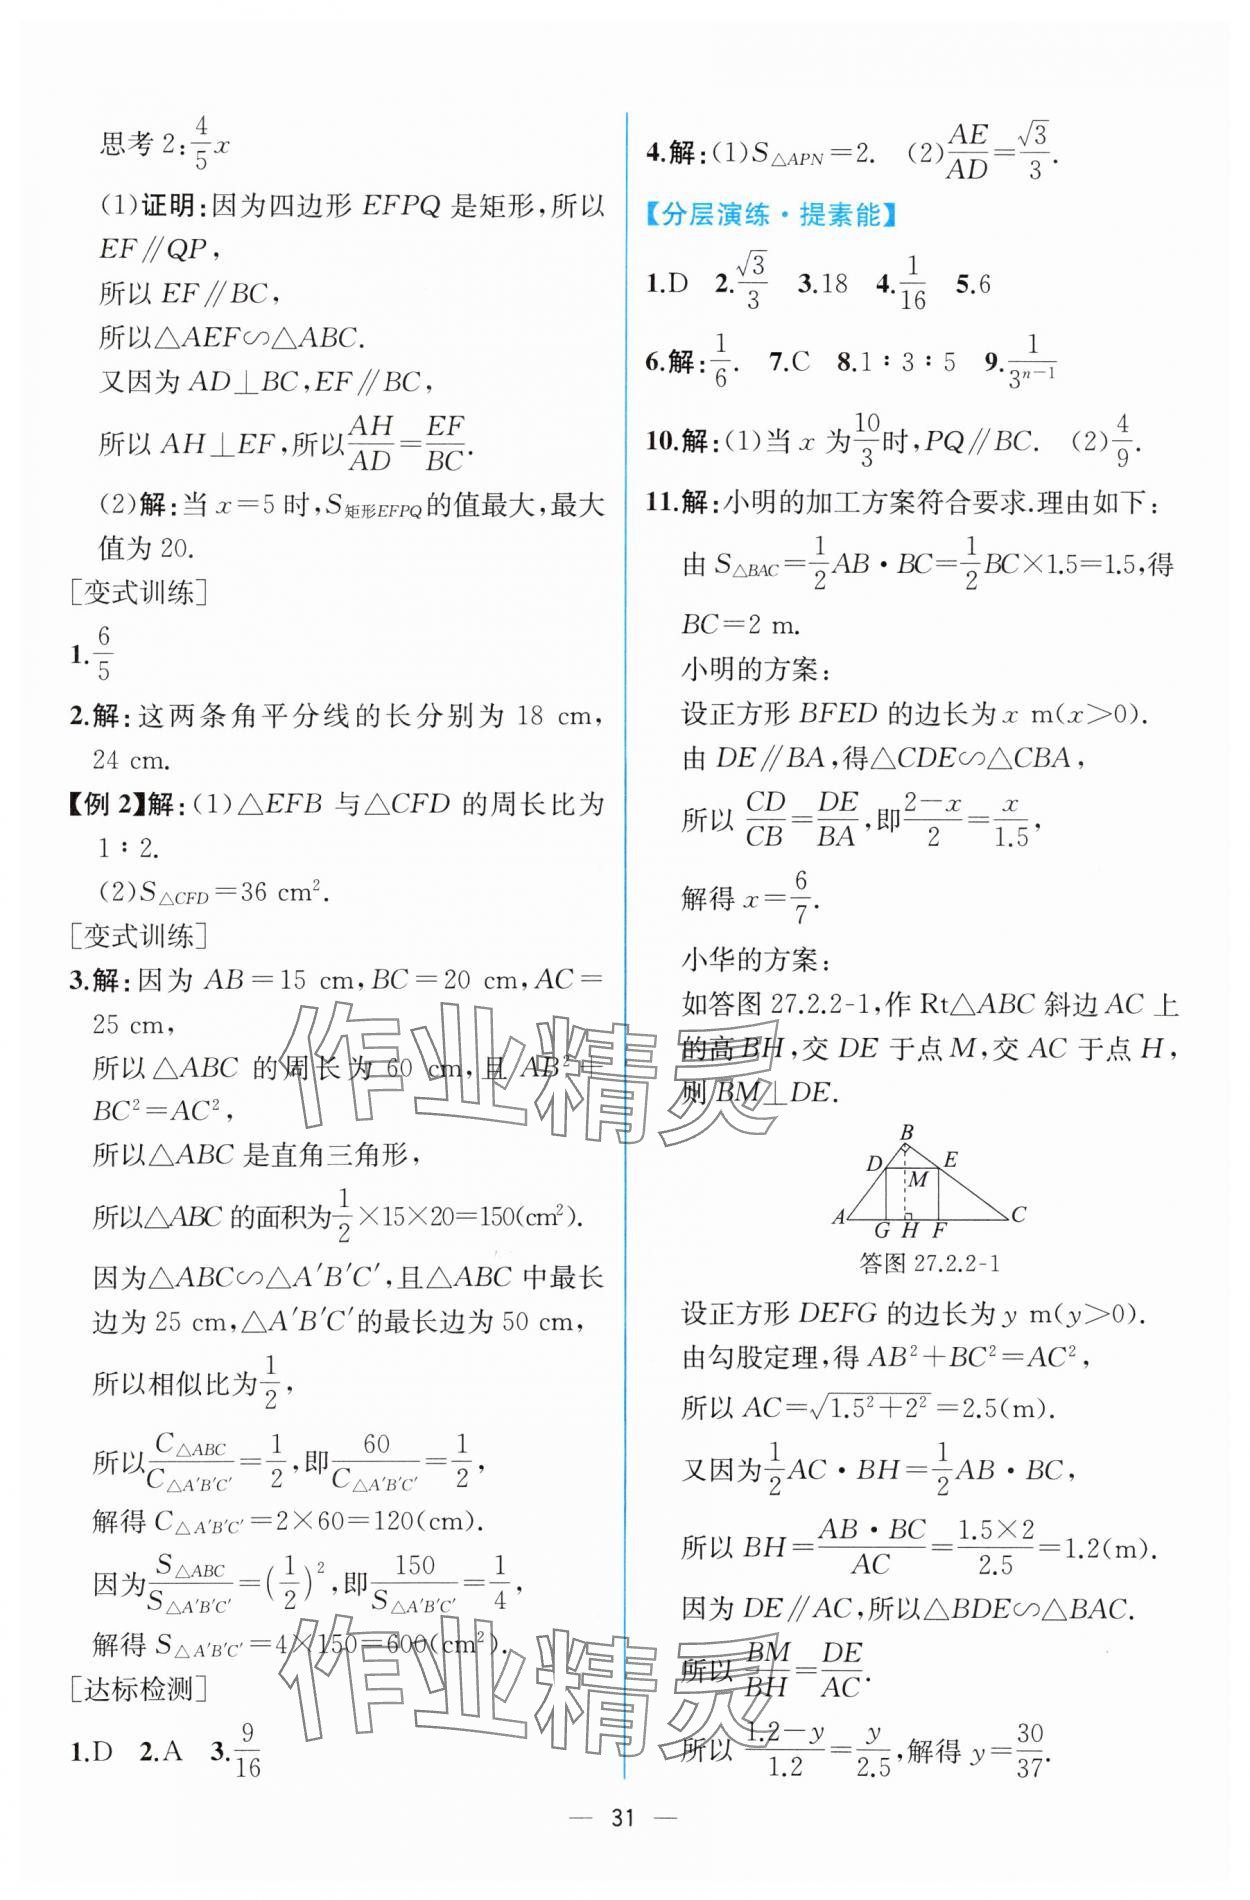 思考2:4/5 x
(1)证明:因为四边形 EFPQ 是矩形,所以
EF∥QP,
所以 EF∥BC,
所以△AEF∽△ABC.
又因为 AD⊥BC,EF∥BC,
所以 AH⊥EF,所以AH/AD=EF/BC.
(2)解:当 x=5 时,S矩形EFPQ的值最大,最大
值为 20.
[变式训练]
1.6/5
2.解:这两条角平分线的长分别为 18 cm,
24 cm.
【例2】解:(1)△EFB 与△CFD 的周长比为
1∶2.
(2)S△CFD=36 cm².
[变式训练]
3.解:因为 AB=15 cm,BC=20 cm,AC=
25 cm,
所以△ABC 的周长为 60 cm,且 AB²=
BC²=AC²,
所以△ABC 是直角三角形,
所以△ABC 的面积为1/2×15×20=150(cm²).
因为△ABC∽△A′B′C′,且△ABC 中最长
边为 25 cm,△A′B′C′的最长边为 50 cm,
所以相似比为1/2,
所以C△ABC/C△A′B′C′=1/2,即60/C△A′B′C′=1/2,
解得 C△A′B′C′=2×60=120(cm).
因为S△ABC/S△A′B′C′=(1/2)²,即150/S△A′B′C′=1/4,
解得 S△A′B′C′=4×150=600(cm²).
[达标检测]
1.D 2.A 3.9/16
4.解:(1)S△APN=2. (2)AE/AD=√3/3.
【分层演练·提素能】
1.D 2.√3/3 3.18 4.1/16 5.6
6.解:1/6. 7.C 8.1∶3∶5 9.1/3ⁿ⁻¹
10.解:(1)当 x 为10/3时,PQ∥BC. (2)4/9.
11.解:小明的加工方案符合要求.理由如下:
由 S△BAC=1/2AB·BC=1/2BC×1.5=1.5,得
BC=2 m.
小明的方案:
设正方形 BFED 的边长为 x m(x>0).
由 DE∥BA,得△CDE∽△CBA,
所以 CD/CB=DE/BA,即2-x/2=x/1.5,
解得 x=6/7.
小华的方案:
如答图 27.2.2-1,作 Rt△ABC 斜边 AC 上
的高 BH,交 DE 于点 M,交 AC 于点 H,
则 BM⊥DE.
B
D E
M
A G H F C
答图 27.2.2-1
设正方形 DEFG 的边长为 y m(y>0).
由勾股定理,得 AB²+BC²=AC²,
所以 AC=√1.5²+2²=2.5(m).
又因为1/2AC·BH=1/2AB·BC,
所以 BH=AB·BC/AC=1.5×2/2.5=1.2(m).
因为 DE∥AC,所以△BDE∽△BAC.
所以 BM/BH=DE/AC.
所以 1.2-y/1.2=y/2.5,解得 y=30/37.
— 31 —
作业精灵
作业精灵